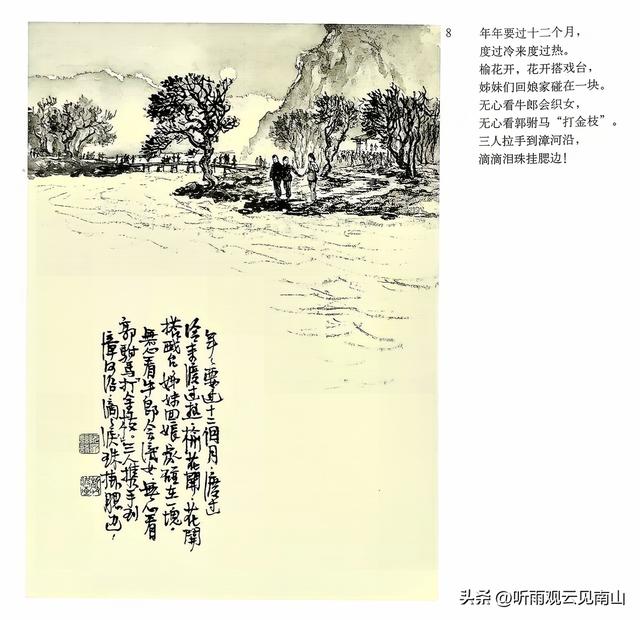 8 年年要过十二个月，
度过冷来度过热。
榆花开，花开搭戏台，
姊妹们回娘家碰在一块。
无心看牛郎会织女，
无心看郭驸马“打金枝”。
三人拉手到漳河沿，
滴滴泪珠挂腮边！
年々要过十二個月，度过
冷来度过热，榆花開，花開
搭戏台，姊妹回娘家碰在一塊，
無心看牛郎会織女無心看
郭駙馬打金枝，三人携手到
漳河沿滴々泪珠掛腮边，
头条 @听雨观云见南山